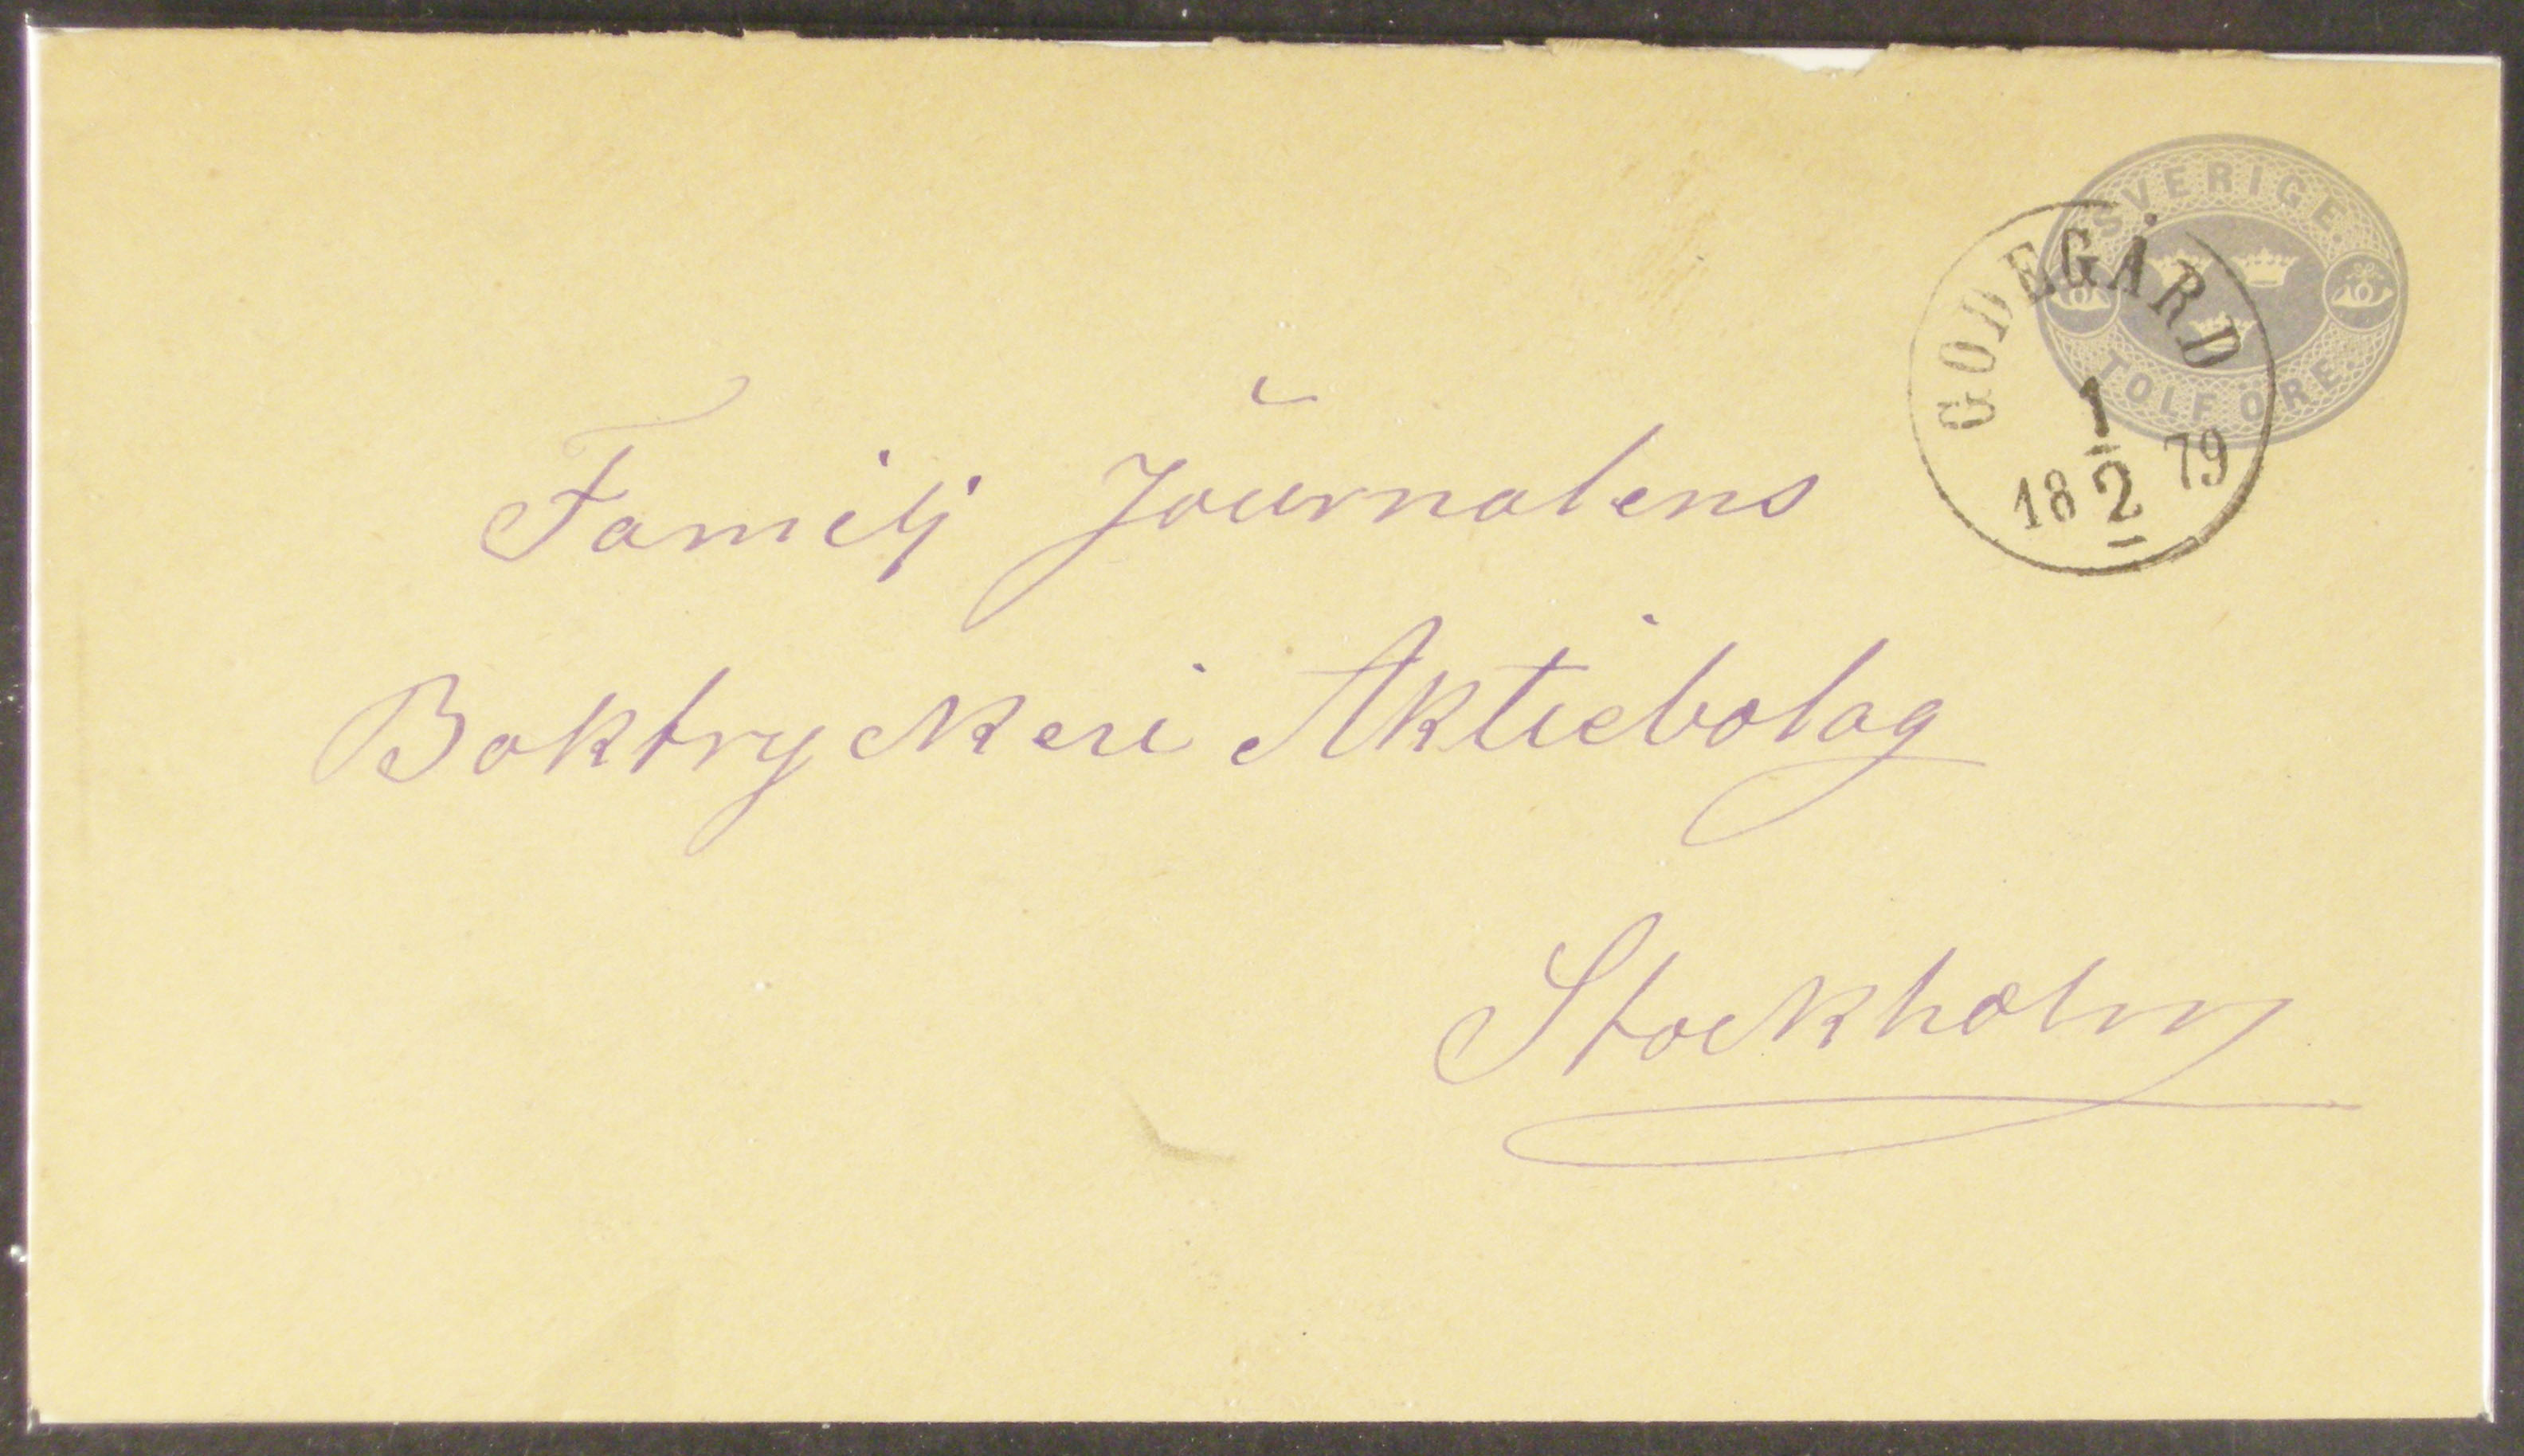 SVERIGE.
TOLF ÖRE.
GODEGÅRD
1
18 2 79
Familj Journalens
Boktryckeri Aktiebolag
Stockholm